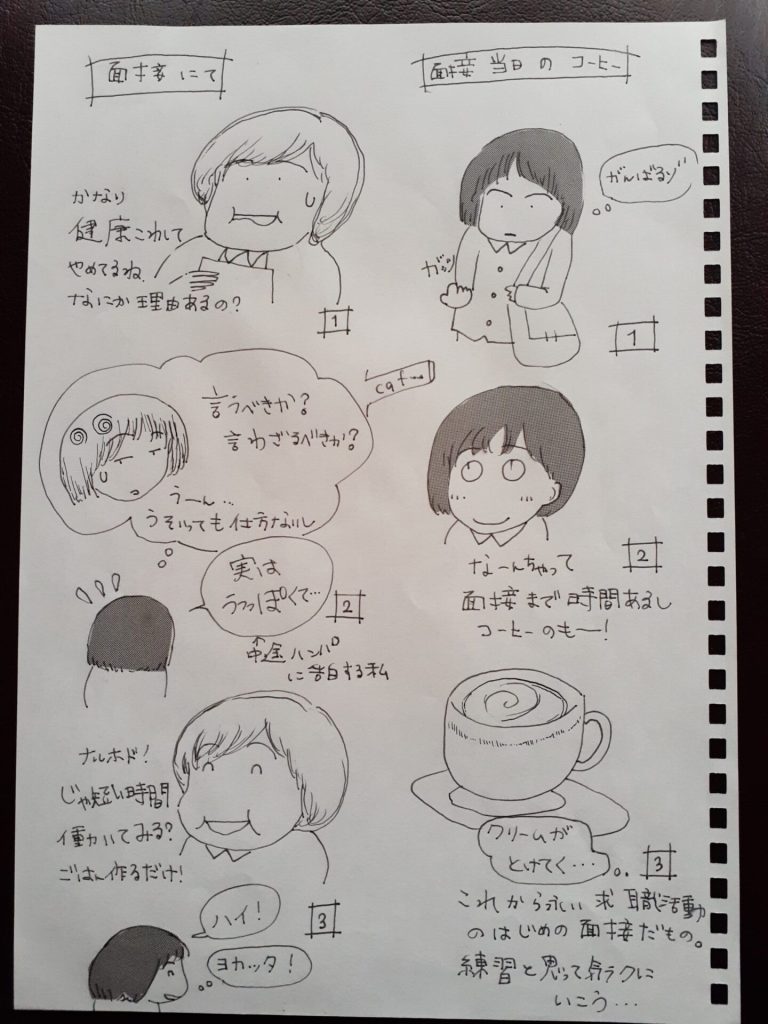 面接当日のコーヒー
がんばるゾ
ガッ
1
2
なーんちゃって
面接まで時間あるし
コーヒーのもー!
クリームが
とけてく・・・
3
これから永い求職活動
のはじめの面接だもの。
練習と思って気ラクに
いこう・・・
面接にて
かなり
健康こわして
やめてるね
なにか理由あるの?
1
言うべきか?
言わざるべきか?
うーん・・
うそいっても仕方ないし
実は
うつっぽくて…
2
中途ハンパ
に告白する私
ナルホド!
じゃ短い時間
働いてみる?
ごはん作るだけ!
3
ハイ!
ヨカッタ!